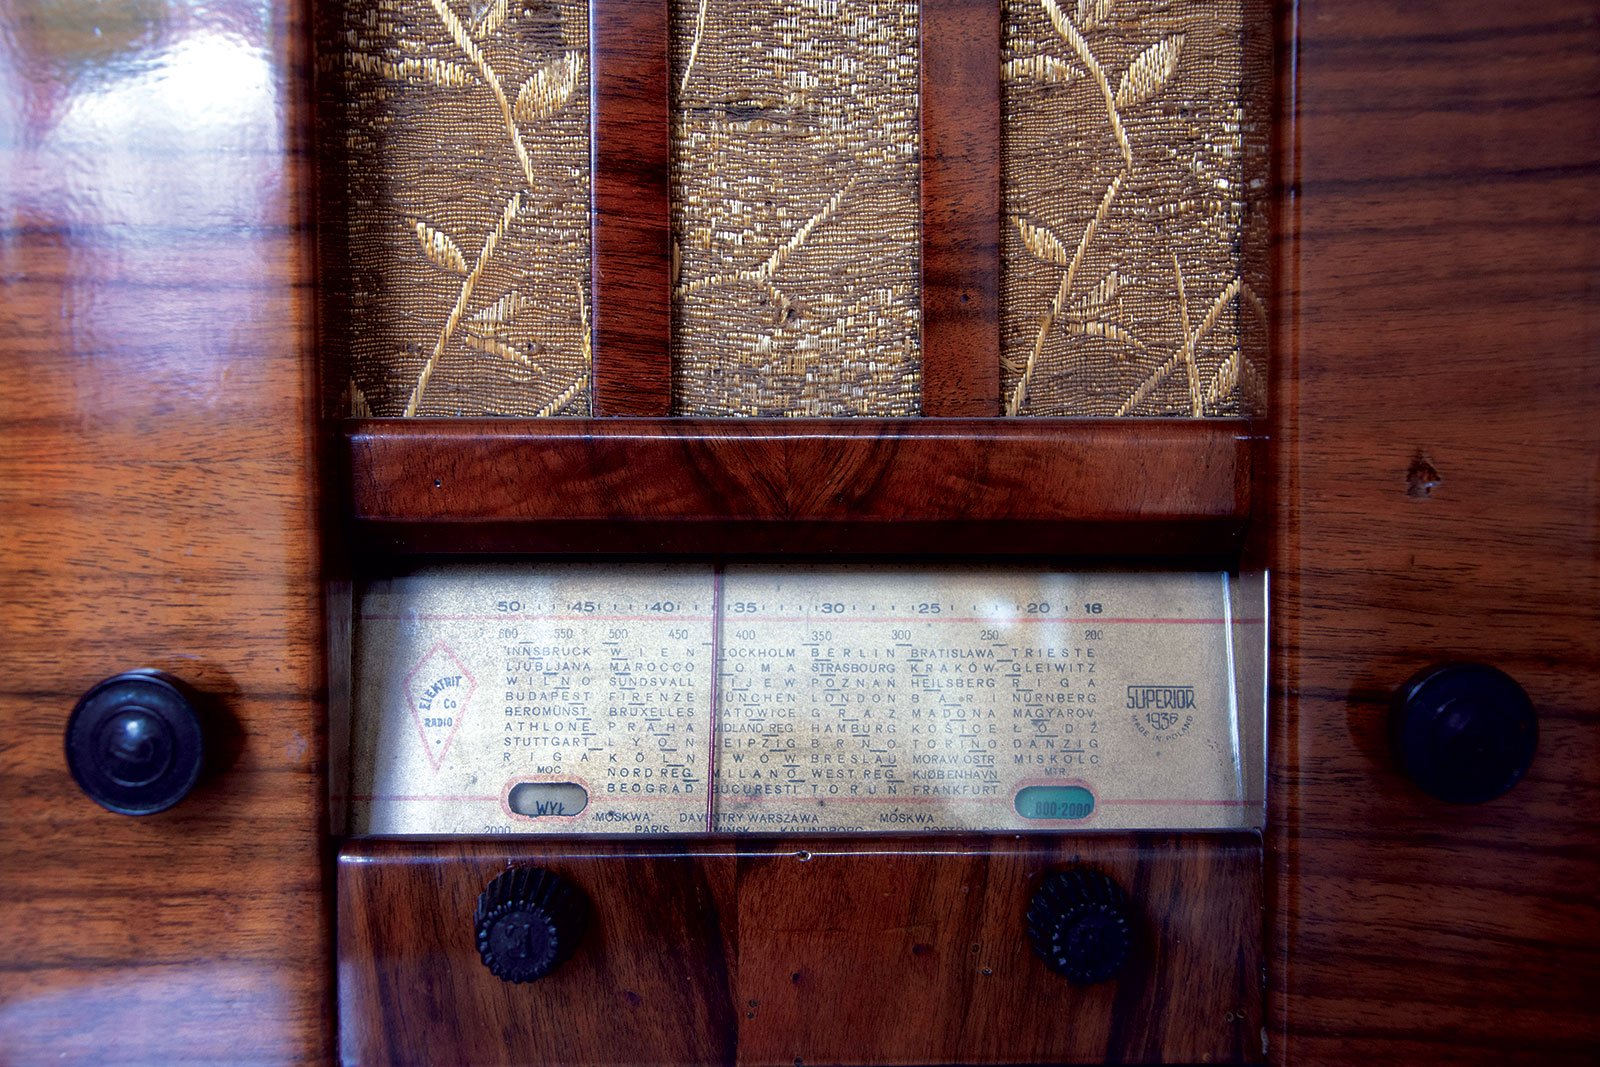 50 45 40 35 30 25 20 16
600 550 500 450 400 350 300 250 200
INNSBRUCK WIEN TOCKHOLM BERLIN BRATISLAWA TRIESTE
LJUBLJANA MAROCCO OMA STRASBOURG KRAKÓW GLEIWITZ
WILNO SUNDSVALL IJEW POZNAŃ HEILSBERG RIGA
BUDAPEST FIRENZE MÜNCHEN LONDON BARI NÜRNBERG
BEROMÜNST. BRUXELLES KATOWICE GRAZ MADONA MAGYAROV.
ATHLONE PRAHA MIDLAND REG. HAMBURG KOŠICE ŁÓDŹ
STUTTGART LYON LEIPZIG BRNO TORINO DANZIG
RIGA KÖLN WOW BRESLAU MORAW.OSTR. MISKOLC
NORD REG. MILANO WEST REG. KJØBENHAVN
BEOGRAD BUCURESTI TORUŃ FRANKFURT
ELEKTRIT
Co
RADIO
SUPERIOR
1936
MADE IN POLAND
MOC
WYŁ
MTR.
800-2000
MOSKWA DAVENTRY WARSZAWA MOSKWA
2000 PARIS MINSK KALUNDBORG